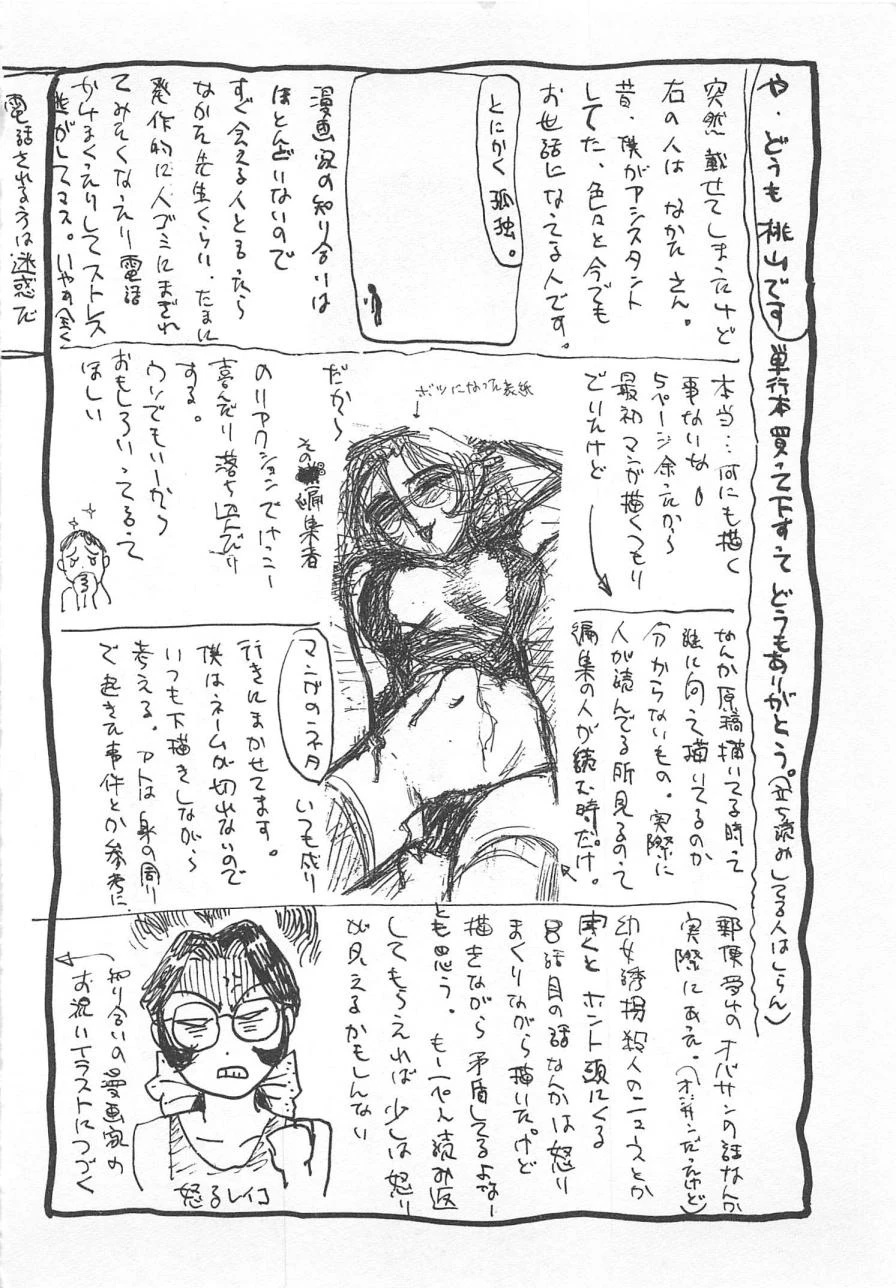 や・どうも 桃山です
単行本買って下すって どうもありがとう。(立ち読みしてる人はしらん)
突然 載せてしまったけど
右の人は なかた さん。
昔、僕がアシスタント
してた、色々と今でも
お世話になってる人です。
とにかく 孤独。
漫画家の知り合いは
ほとんどいないので
すぐ会える人といったら
なかた先生くらい。たまに
発作的に人ゴミにまぎれ
てみたくなったり電話
かけまくったりしてストレス
逃がしてマス。いやすべく
電話される方は迷惑だ
本当…何にも描く
事ないな。
5ページ余ったから
最初マンガ描くつもり
でいたけど
なんか原稿描いてる時って
誰に向って描いてるのか
分からないもの。実際に
人が読んでる所見るのって
編集の人が読む時だけ。
ボツになった表紙
だから
その編集者
のリアクションでけっこー
喜んだり落ち込んだり
する。
ウソでもいーから
おもしろいってるって
ほしい
マンガのネタ
いつも成り
行きにまかせてます。
僕はネームが切れないので
いつも下描きしながら
考える。アトは身の周り
で起きた事件とか参考に
郵便受けのオバサンの話なんか
実際にあった。(オジサンだったけど)
幼女誘拐殺人のニュースとか
聞くと ホント頭にくる
8話目の話なんかは怒り
まくりながら描いたけど
描きながら矛盾してるよなー
とも思う。もー一ぺん読み返
してもらえれば少しは怒り
が見えるかもしんない
怒るレイコ
知り合いの漫画家の
お祝いイラストにつづく